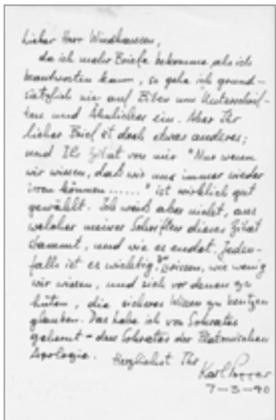 Lieber Herr Windhausen,
da ich mehr Briefe bekomme, als ich
beantworten kann, so gehe ich grund-
sätzlich nie auf Bitten um Unterschrif-
ten und Ähnliches ein. Aber Ihr
lieber Brief ist doch etwas anderes;
und Ihr Zitat von mir "Nur wenn
wir wissen, daß wir uns immer wieder
irren können ......" ist wirklich gut
gewählt. Ich weiß aber nicht, aus
welcher meiner Schriften dieses Zitat
stammt, und wie es endet. Jeden-
falls ist es wichtig, zu wissen, wie wenig
wir wissen, und sich vor denen zu
hüten, die sicheres Wissen zu besitzen
glauben. Das habe ich von Sokrates
gelernt – dem Sokrates der Platonischen
Apologie. Herzlichst Ihr
Karl Popper
7–3–90